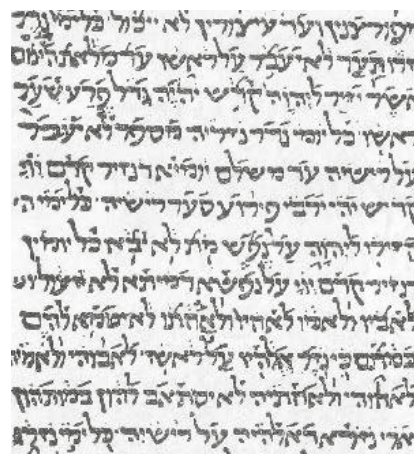 מפורצנין ועד עיצורין לא ייכול כל ימי נדר
נזרו תער לא יעבר על ראשו עד מלאת הימם
אשר יזיר ליהוה קדש יהיה גדל פרע שער
ראשו כל יומי נדר נזריה מספר לא יעבר
על רישיה עד משלם יומיא דנזיר קדם יוי
קדיש יהי ירבי פירוע סער רישיה כל ימי
הזירו ליהוה על נפש מת לא יבא כל יומין
דנזיר קדם יוי על נפשא דמיתא לא ייעול
לאביו ולאמו לאחיו ולאחתו לא יטמא להם
במתם כי נזר אלהיו על ראשו לאבוהי ולאמיה
לאחוהי ולאחתיה לא יסתאב להון במותהון
ארי נזרא דאלהיה על רישיה כל ימי נזרו